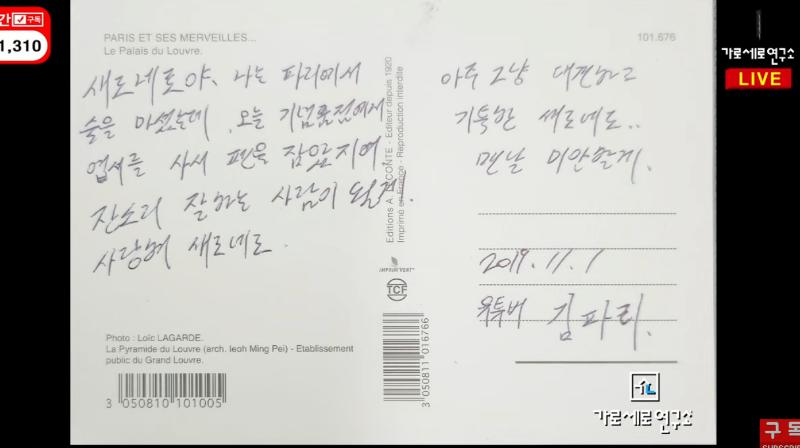 간 ✓구독
1,310
PARIS ET SES MERVEILLES...
Le Palais du Louvre.
101.676
가로세로연구소
LIVE
새로네로야, 나는 파리에서
술을 마셨는데, 오늘 기념품점에서
엽서를 사서 펜을 잡았지예.
잔소리 잘하는 사람이 될게.
사랑해 새로네로.
아주 그냥 대견하고
기특한 새로네로..
맨날 미안할게.
2019.11.1
유투버 김파리.
Editions A. LECONTE - Editeur depuis 1920
Imprimé en France - Reproduction interdite
IMPRIM'VERT
TCF
Photo : Loïc LAGARDE.
La Pyramide du Louvre (arch. Ieoh Ming Pei) - Etablissement
public du Grand Louvre.
3 050810 101005
3 050811 016766
가로세로연구소
구독
SUBSCRIBE